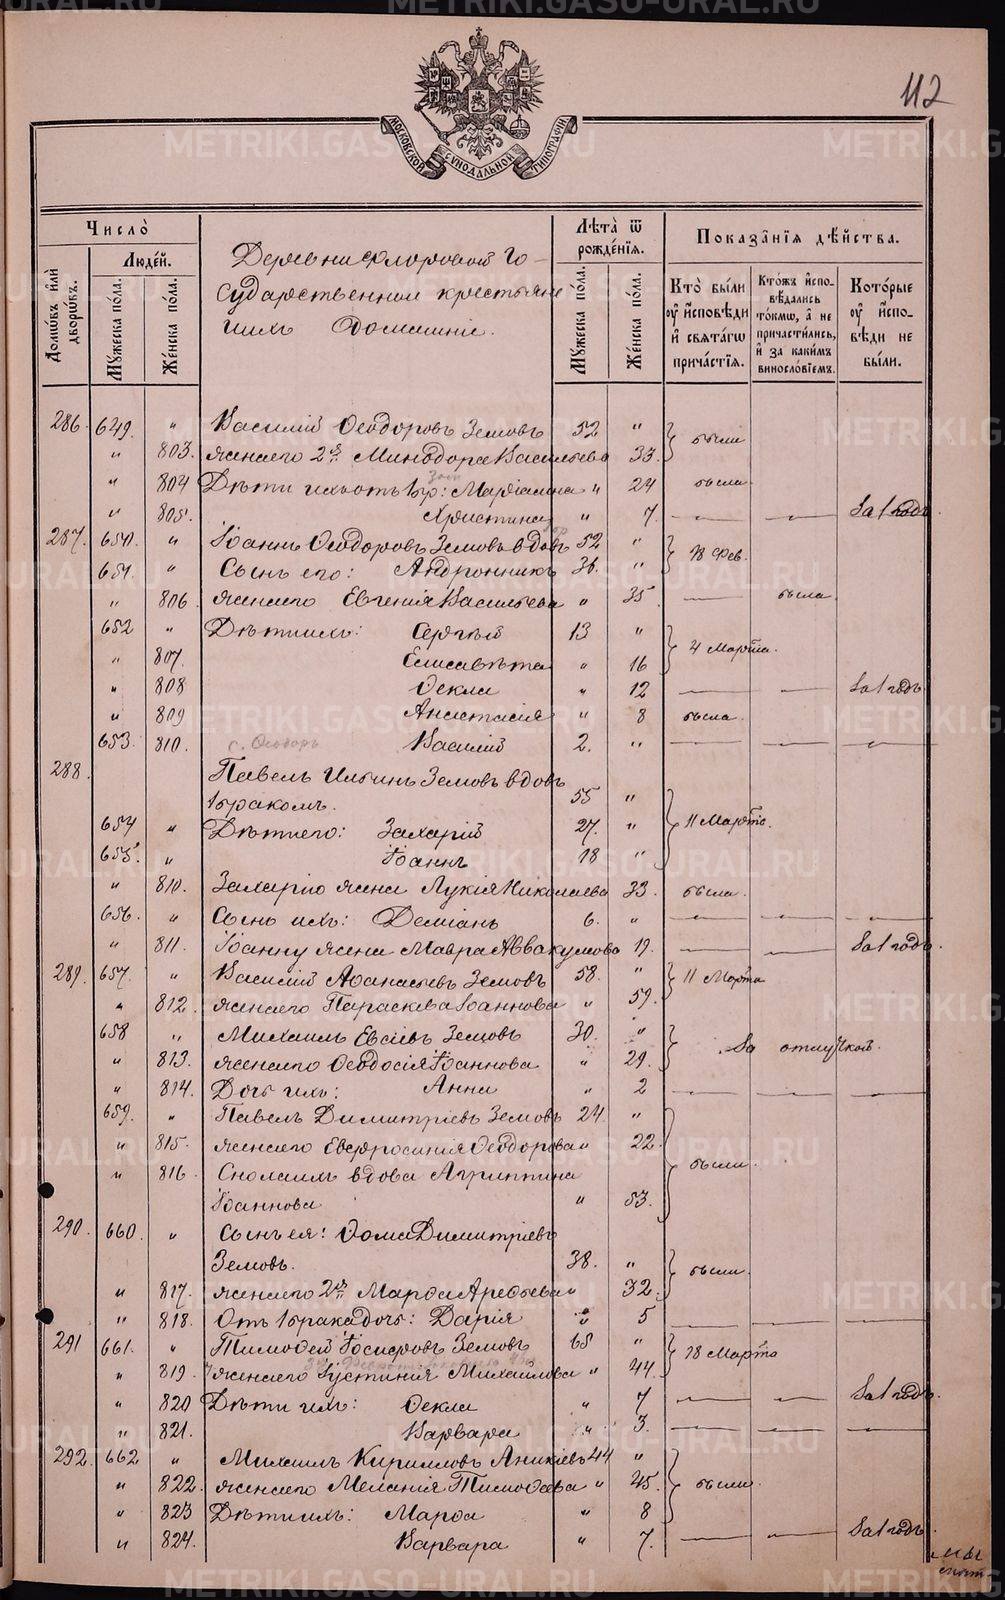 112
МОСКОВСКОЙ СѴНОДАЛЬНОЙ ТИПОГРАФІИ
Число̀
Люде́й.
Домѡ́въ и҆лѝ дворѡ́въ.
Мꙋ́жеска по́ла.
Же́нска по́ла.
Деревни Флоровой Го-
сударственныи крестьяне
ихъ домашніе.
Лѣта̀ ѿ рожде́нія.
Мꙋ́жеска по́ла.
Же́нска по́ла.
Показа̑нія дѣ́йства.
Кто̀ бы́ли оу҆ и҆сповѣ́ди и҆ свѧта́гѡ причáстія.
Кто́жъ и҆спо-вѣ́дались то́кмѡ, а҆ не причасти́лись, и҆ за каки́мъ винослóвіемъ.
Кото́рые оу҆ и҆спо-вѣ́ди не бы́ли.
286. 649. " Василій Ѳеодоровъ Земовъ 52 " были
" 803. жена его 2я Минодора Васильева 33.
" 804 Дѣти ихъ отъ 1бр: Маріамна " 24 была
" 805. Христина " 7. — — За 1 годъ
287. 650. " Іоаннъ Ѳеодоровъ Земовъ вдовъ 52 " 18 Фев.
651. " Сынъ его: Андронникъ 36. "
" 806. жена его Евгенія Васильева " 35 — была
652 " Дѣти ихъ: Сергѣй 13 " 4 Марта.
" 807. Елисавета " 16
" 808 Ѳекла " 12 — — За 1 годъ
" 809 Анастасія " 8 была.
653. 810. с. Ѳеодоръ Василій 2. " — — —
288. Павелъ Ильинъ Земовъ вдовъ
1 бракомъ. 55 " 11 Марта.
654 " Дѣти его: Захарій 27. "
655. " Іоаннъ 18 "
" 810. Захарію жена Лукія Николаева 33. была.
656. " Сынъ ихъ: Деміанъ 6. " — — —
" 811. Іоанну жена Мавра Аввакумова 19. — — За 1 годъ.
289. 657. " Василій Аѳанасьевъ Земовъ 58. " 11 Марта
" 812. жена его Параскева Іоаннова " 59.
658 " Михаилъ Евсіевъ Земовъ 30. " За отлучкой.
" 813. жена его Ѳеодосія Іоаннова " 29.
" 814. Дочь ихъ: Анна " 2 — — —
659. " Павелъ Димитріевъ Земовъ 24. " были
" 815. жена его Евфросинія Ѳеодорова " 22.
" 816. Сноха ихъ вдова Агриппина
Іоаннова " 53.
290. 660. " Сынъ ея: Ѳома Димитріевъ
Земовъ. 38. " были.
" 817. жена его 2я Марѳа Арефьева " 32.
" 818. Отъ 1 брака дочь: Дарія " 5 — — —
291 661. " Тимоѳей Іосифовъ Земовъ 65 " 18 Марта
" 819. жена его Іустинія Михайлова " 44.
" 820 Дѣти ихъ: Ѳекла " 7 — — За 1 годъ.
" 821. Варвара " 3. — — —
292. 662 " Михаилъ Кирилловъ Аникіевъ 44 " были.
" 822. жена его Меланія Тимоѳеева " 45.
" 823 Дѣти ихъ: Марѳа " 8
" 824. Варвара " 7. — — За 1 годъ.
METRIKI.GASO-URAL.RU